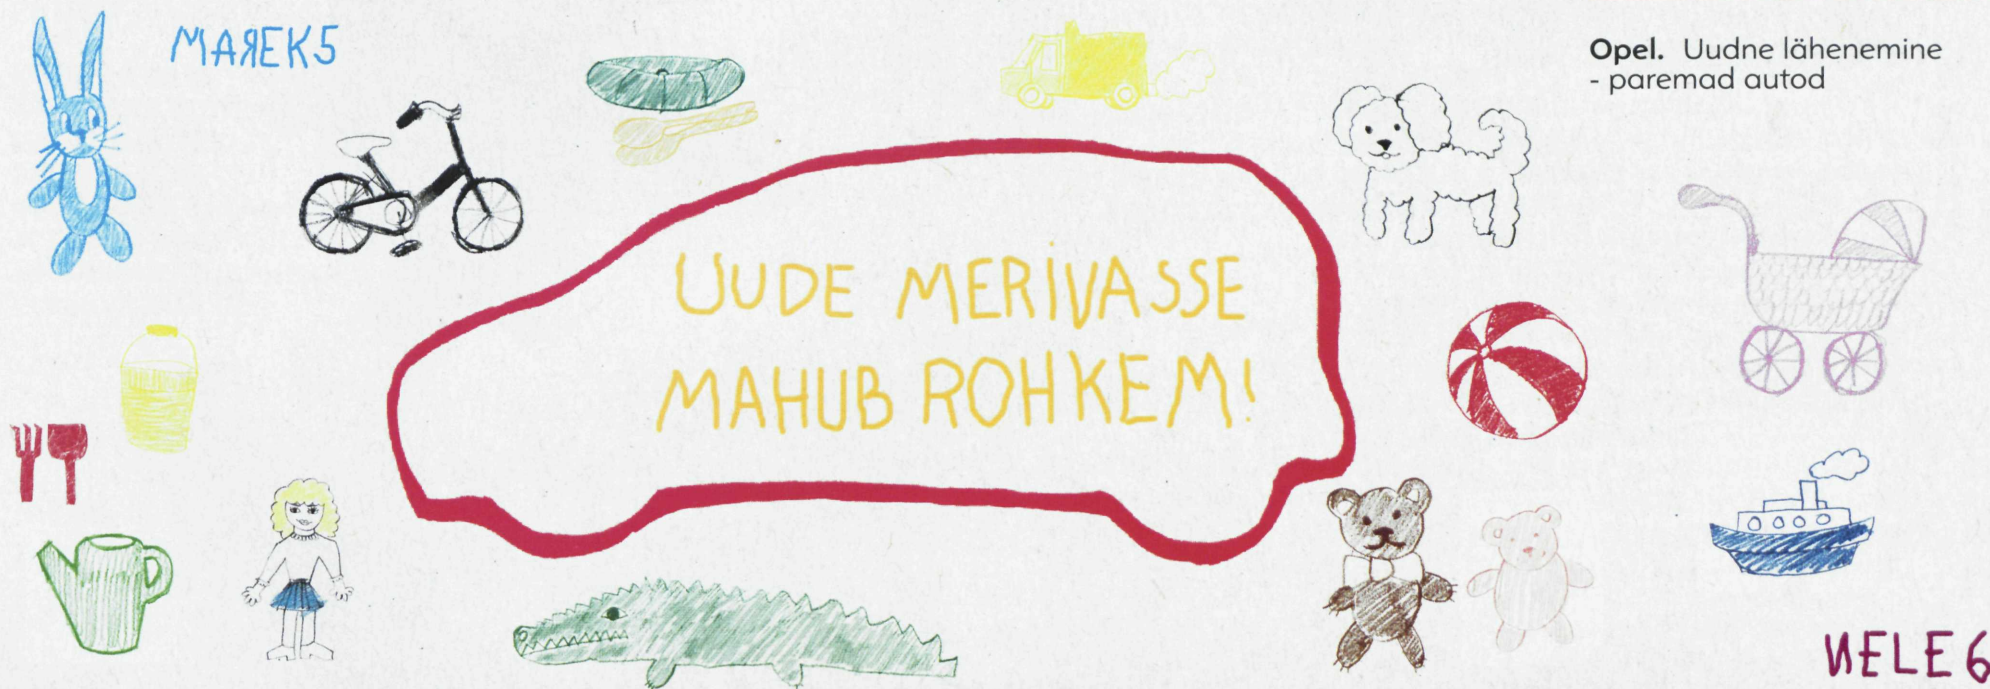 MAREK5
Opel. Uudne lähenemine
- paremad autod
UUDE MERIVASSE
MAHUB ROHKEM!
NELE 6